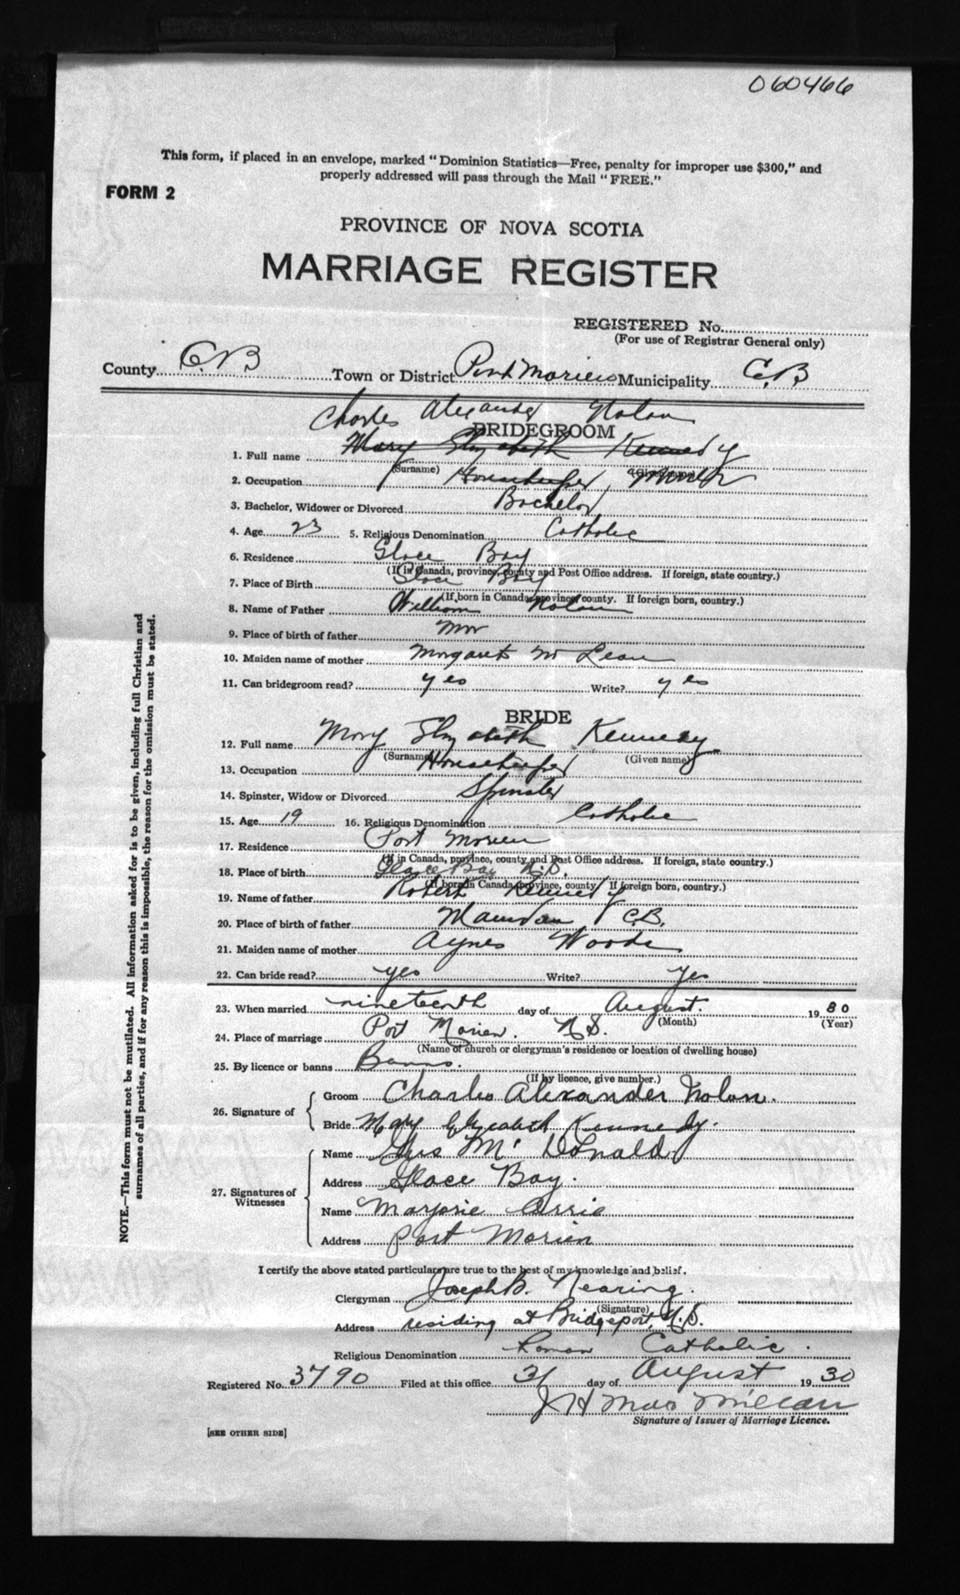 060466
This form, if placed in an envelope, marked "Dominion Statistics—Free, penalty for improper use $300," and
properly addressed will pass through the Mail "FREE."
FORM 2
PROVINCE OF NOVA SCOTIA
MARRIAGE REGISTER
REGISTERED No.
(For use of Registrar General only)
County C.B Town or District Port Morien Municipality C.B
Charles Alexander Nolan
BRIDEGROOM
1. Full name Mary Elizabeth Kennedy
(Surname) (Given name)
2. Occupation Housekeeper,
3. Bachelor, Widower or Divorced Bachelor
4. Age 23 5. Religious Denomination Catholic
6. Residence Glace Bay
(If in Canada, province, county and Post Office address. If foreign, state country.)
7. Place of Birth Glace Bay
(If born in Canada, province, county. If foreign born, country.)
8. Name of Father William Nolan
9. Place of birth of father
10. Maiden name of mother Margaret McLean
11. Can bridegroom read? yes Write? yes
BRIDE
12. Full name Mary Elizabeth Kennedy
(Surname) (Given name)
13. Occupation Housekeeper
14. Spinster, Widow or Divorced Spinster
15. Age 19 16. Religious Denomination Catholic
17. Residence Port Morien
(If in Canada, province, county and Post Office address. If foreign, state country.)
18. Place of birth Glace Bay N.S.
(If born in Canada, province, county. If foreign born, country.)
19. Name of father Robert Kennedy
20. Place of birth of father C.B.
21. Maiden name of mother Agnes Woods
22. Can bride read? yes Write? yes
23. When married nineteenth day of August. 1930
(Month) (Year)
24. Place of marriage Port Morien. N.S.
(Name of church or clergyman's residence or location of dwelling house)
25. By licence or banns Banns.
(If by licence, give number.)
26. Signature of Groom Charles Alexander Nolan.
Bride Mary Elizabeth Kennedy.
27. Signatures of Witnesses Name Gus McDonald
Address Glace Bay.
Name Marjorie
Address Port Morien
I certify the above stated particulars are true to the best of my knowledge and belief.
Clergyman Joseph B. Nearing.
(Signature)
Address residing at Bridgeport, N.S.
Religious Denomination Roman Catholic.
Registered No. 3790 Filed at this office 21 day of August 1930
J H MacMillan
Signature of Issuer of Marriage Licence.
[SEE OTHER SIDE]
NOTE.—This form must not be mutilated. All information asked for is to be given, including full Christian and
surnames of all parties, and if for any reason this is impossible, the reason for the omission must be stated.